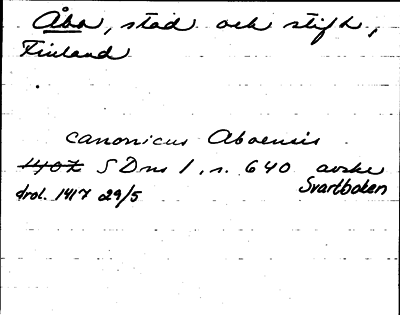 Åbo, stad och stift,
Finland
canonicus Aboensis
1407 SDns 1, s. 640 avskr
Svartboken
drol. 1417 29/5